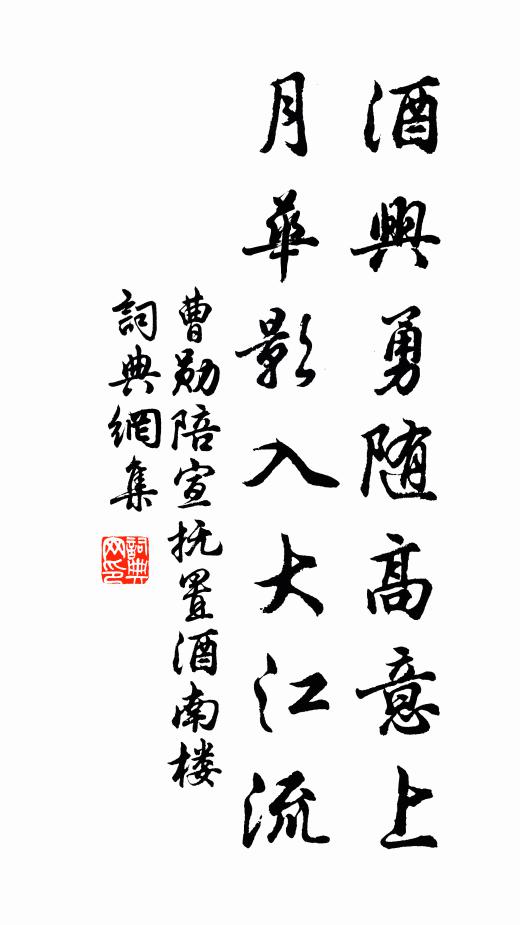 酒興勇随高意上
月華影入大江流
曹勛陪宣抚置酒南楼
詞典網集
詞典网印